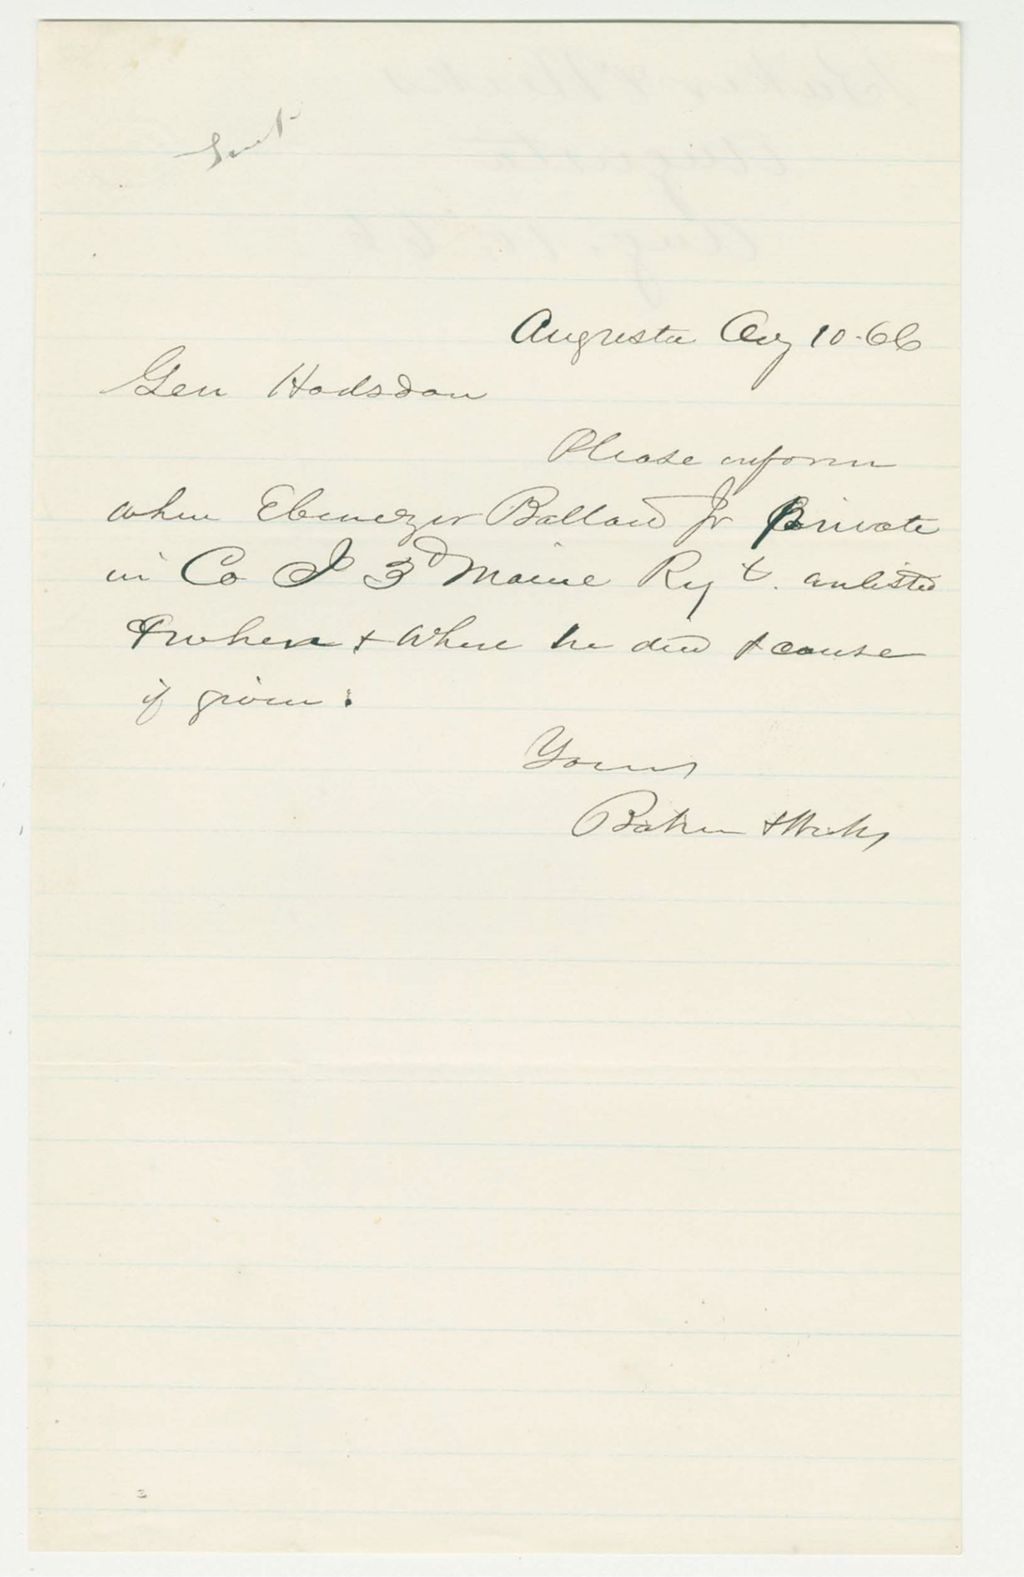 Sent
Augusta Aug 10-66
Gen Hodsdon
Please inform
when Ebenezer Ballard Jr Private
in Co I 3d Maine Regt. enlisted
& when & where he died & cause
if given.
Yours
Baker & Weeks